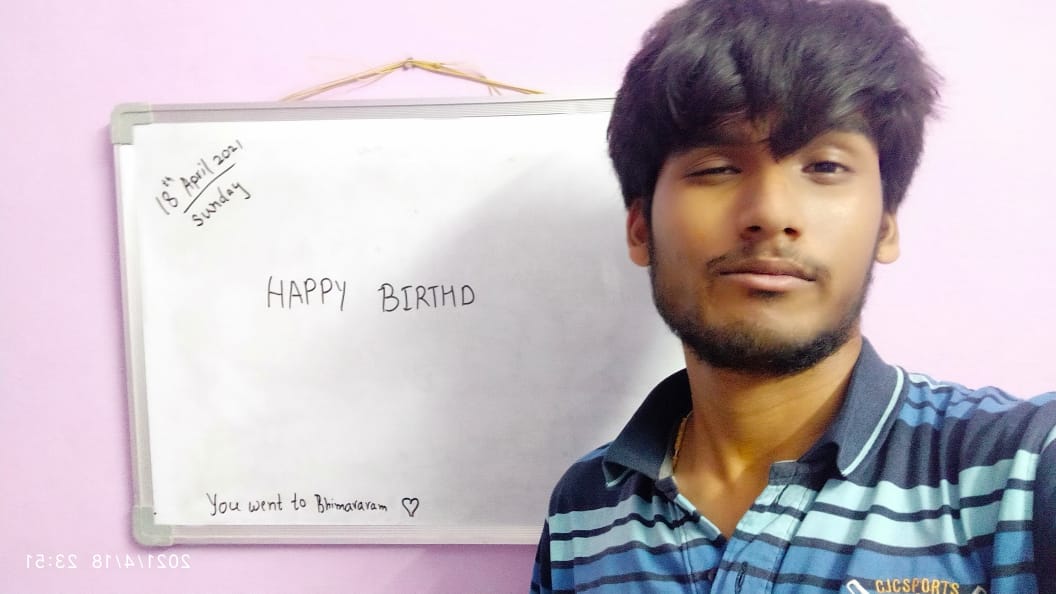 18th April 2021
Sunday
HAPPY BIRTHD
You went to Bhimavaram ♡
2021/4/18 23:51
CJCSPORTS